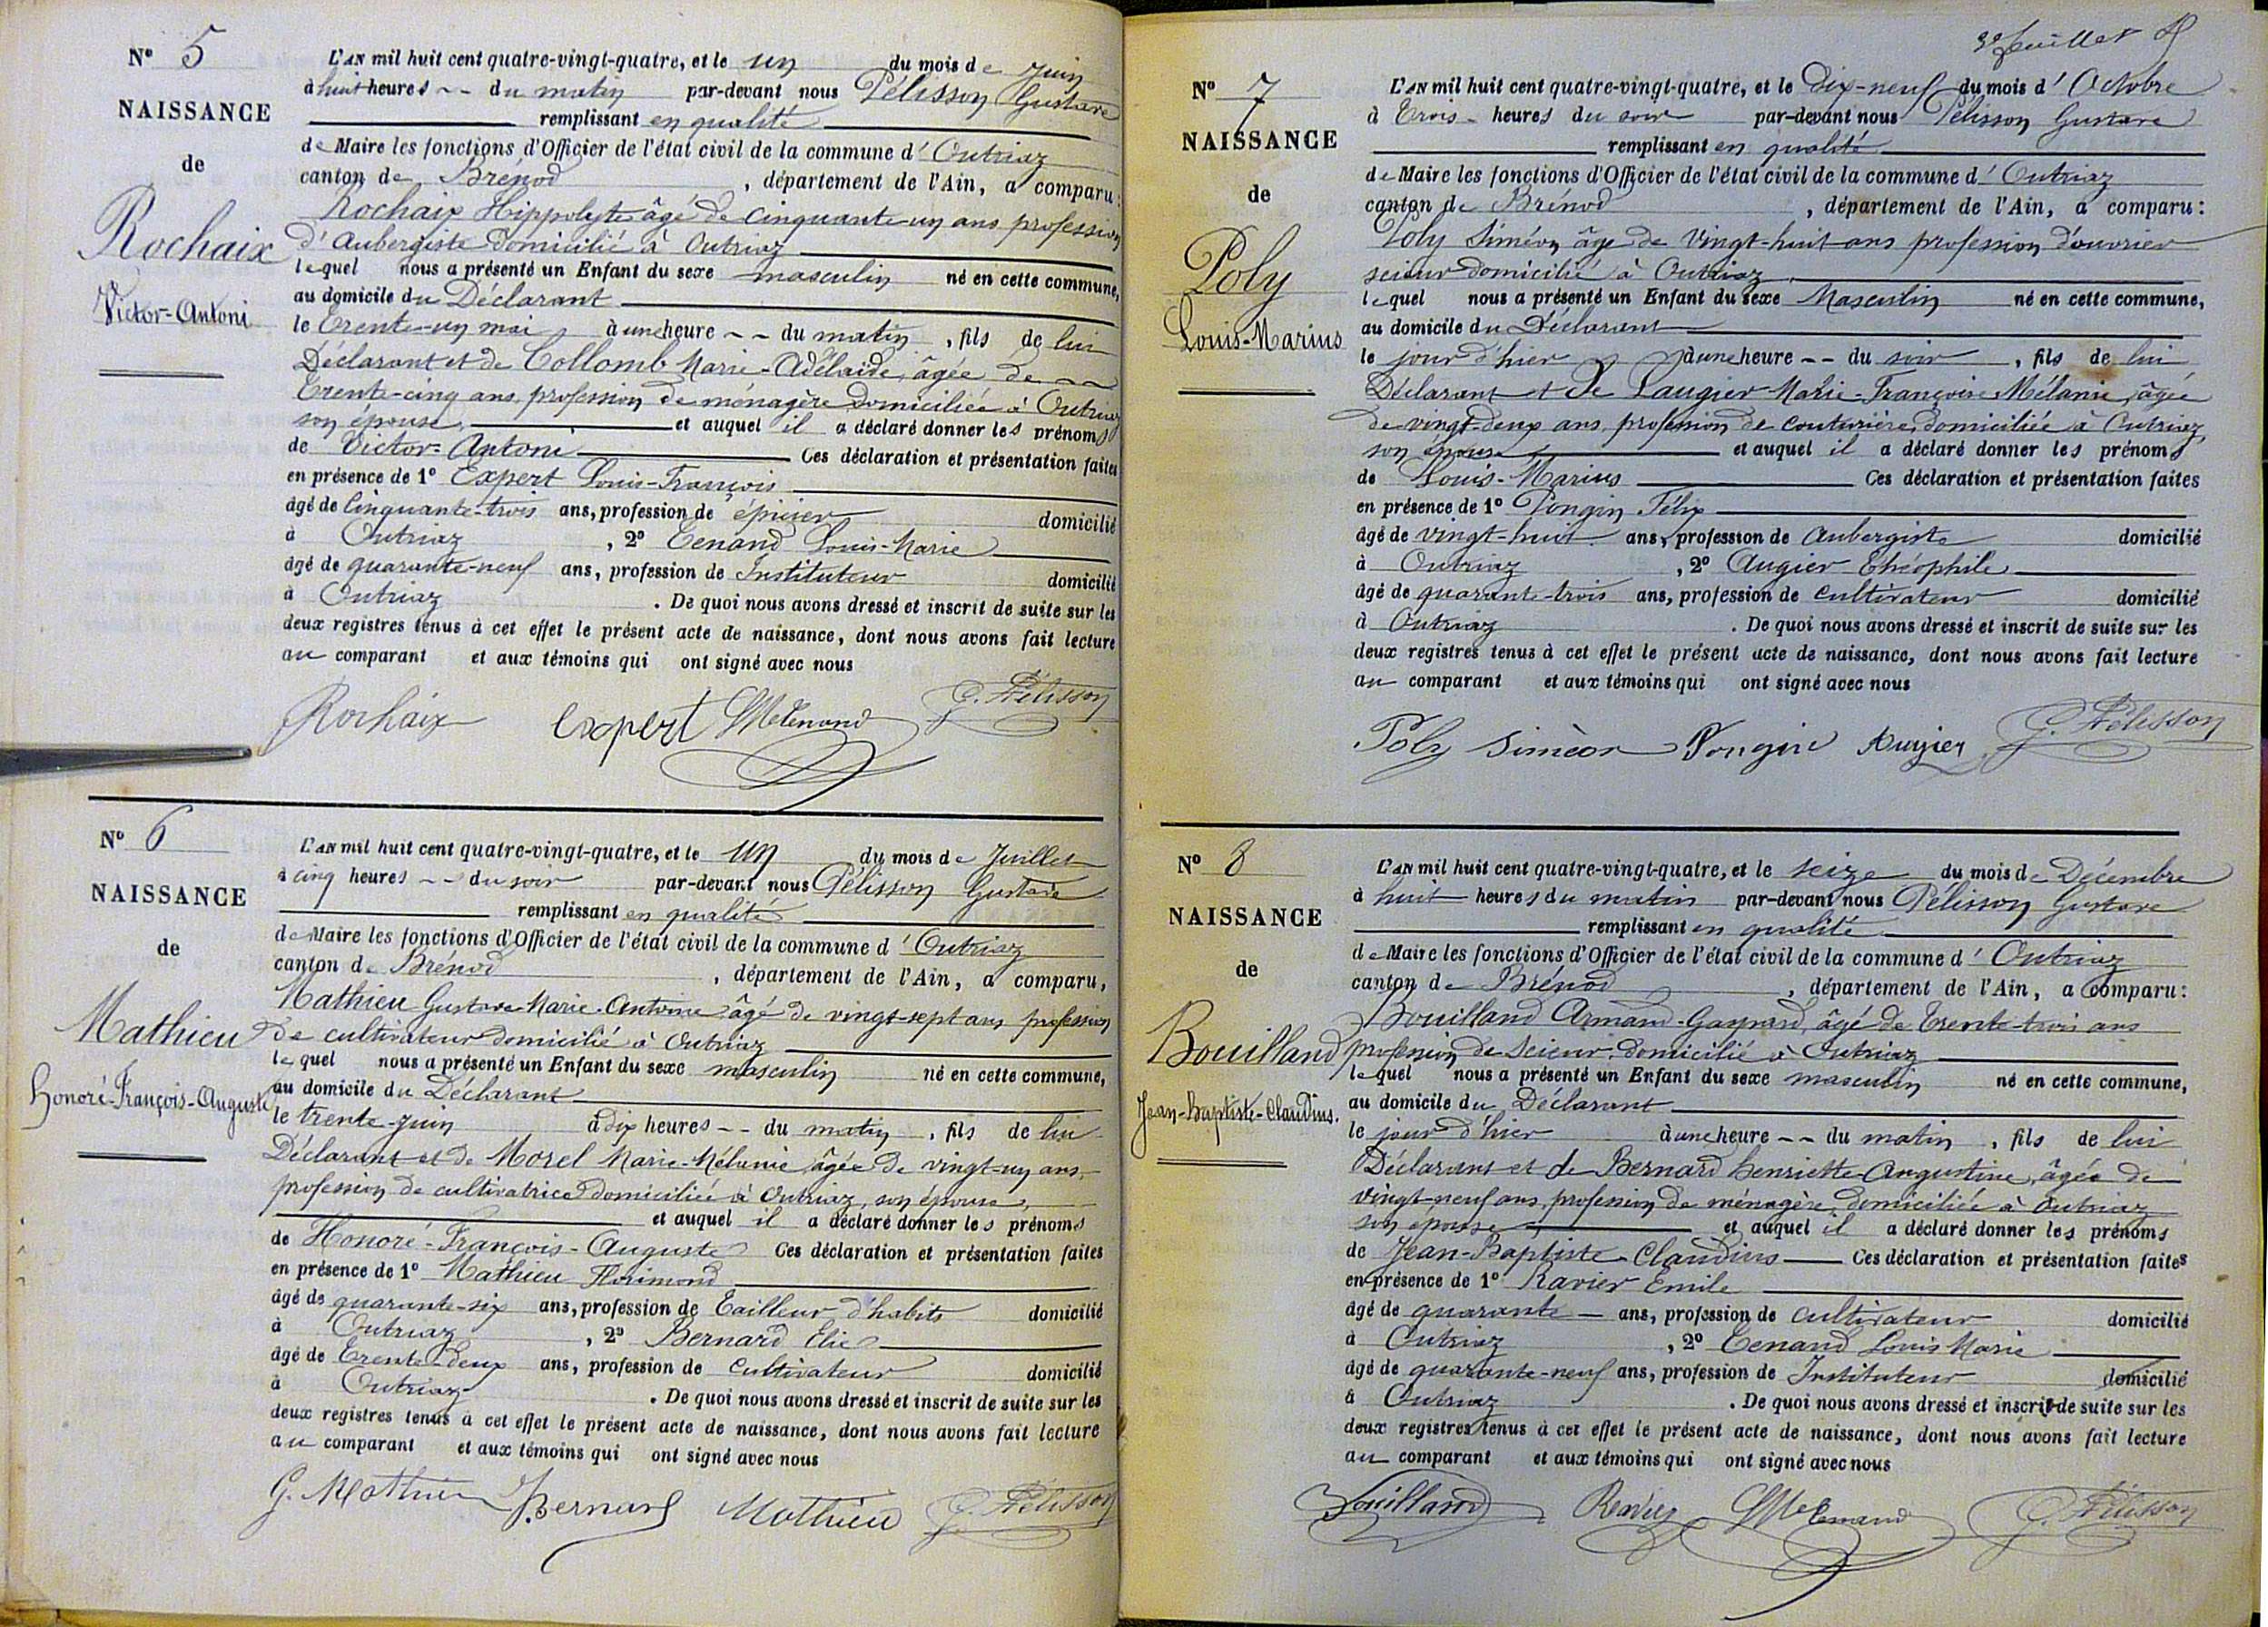 N° 5
NAISSANCE
de
Rochaix
Victor-Antoni
L'AN mil huit cent quatre-vingt-quatre, et le un du mois de Juin
à huit heures -- du matin par-devant nous Pélisson Gustave
remplissant en qualité
de Maire les fonctions d'Officier de l'état civil de la commune d'Outriaz
canton de Brénod, département de l'Ain, a comparu:
Rochaix Hippolyte âgé de cinquante-un ans profession
d'Aubergiste domicilié à Outriaz
lequel nous a présenté un Enfant du sexe masculin né en cette commune,
au domicile du Déclarant
le trente-un mai, à une heure -- du matin, fils de lui
Déclarant et de Collomb Marie-Adélaide, âgée de
trente-cinq ans, profession de ménagère domiciliée à Outriaz
son épouse, et auquel il a déclaré donner les prénoms
de Victor-Antoni Ces déclaration et présentation faites
en présence de 1° Expert Louis-François
âgé de Cinquante-trois ans, profession de épicier domicilié
à Outriaz, 2° Tenand Louis-Marie
âgé de quarante-neuf ans, profession de Instituteur domicilié
à Outriaz. De quoi nous avons dressé et inscrit de suite sur les
deux registres tenus à cet effet le présent acte de naissance, dont nous avons fait lecture
au comparant et aux témoins qui ont signé avec nous
Rochaix Expert LMTenand G. Pélisson
N° 6
NAISSANCE
de
Mathieu
Honoré-François-Auguste
L'AN mil huit cent quatre-vingt-quatre, et le un du mois de Juillet
à cinq heures -- du soir par-devant nous Pélisson Gustave
remplissant en qualité
de Maire les fonctions d'Officier de l'état civil de la commune d'Outriaz
canton de Brénod, département de l'Ain, a comparu,
Mathieu Gustave Marie-Antoine âgé de vingt-sept ans profession
de cultivateur domicilié à Outriaz
lequel nous a présenté un Enfant du sexe masculin né en cette commune,
au domicile du Déclarant
le trente-juin à dix heures -- du matin, fils de lui
Déclarant et de Morel Marie-Mélanie, âgée de vingt-un ans,
profession de cultivatrice domiciliée à Outriaz, son épouse,
et auquel il a déclaré donner les prénoms
de Honoré-François-Auguste Ces déclaration et présentation faites
en présence de 1° Mathieu Florimond
âgé de quarante-six ans, profession de Tailleur d'habits domicilié
à Outriaz, 2° Bernard Elie
âgé de trente-deux ans, profession de cultivateur domicilié
à Outriaz. De quoi nous avons dressé et inscrit de suite sur les
deux registres tenus à cet effet le présent acte de naissance, dont nous avons fait lecture
au comparant et aux témoins qui ont signé avec nous
G. Mathieu Bernard Mathieu G. Pélisson
3e feuillet
N° 7
NAISSANCE
de
Poly
Louis-Marius
L'AN mil huit cent quatre-vingt-quatre, et le dix-neuf du mois d'Octobre
à trois heures du soir par-devant nous Pélisson Gustave
remplissant en qualité
de Maire les fonctions d'Officier de l'état civil de la commune d'Outriaz
canton de Brénod, département de l'Ain, a comparu:
Poly Siméon âgé de vingt-huit ans profession d'ouvrier
scieur domicilié à Outriaz
lequel nous a présenté un Enfant du sexe Masculin né en cette commune,
au domicile du Déclarant
le jour d'hier à une heure -- du soir, fils de lui
Déclarant et de Laugier Marie-Françoise Mélanie, âgée
de vingt-deux ans, profession de couturière, domiciliée à Outriaz,
son épouse et auquel il a déclaré donner les prénoms
de Louis-Marius Ces déclaration et présentation faites
en présence de 1° Pongin Félix
âgé de vingt-huit ans, profession de Aubergiste domicilié
à Outriaz, 2° Augier Théophile
âgé de quarante-trois ans, profession de cultivateur domicilié
à Outriaz. De quoi nous avons dressé et inscrit de suite sur les
deux registres tenus à cet effet le présent acte de naissance, dont nous avons fait lecture
au comparant et aux témoins qui ont signé avec nous
Poly Siméon Pongin Augier G. Pélisson
N° 8
NAISSANCE
de
Bouilland
Jean-Baptiste-Claudius.
L'AN mil huit cent quatre-vingt-quatre, et le seize du mois de Décembre
à huit heures du matin par-devant nous Pélisson Gustave
remplissant en qualité
de Maire les fonctions d'Officier de l'état civil de la commune d'Outriaz
canton de Brénod, département de l'Ain, a comparu:
Bouilland Armand-Gaspard, âgé de trente-trois ans
profession de scieur, domicilié à Outriaz
lequel nous a présenté un Enfant du sexe masculin né en cette commune,
au domicile du Déclarant
le jour d'hier à une heure -- du matin, fils de lui
Déclarant et de Bernard Henriette-Augustine, âgée de
vingt-neuf ans, profession de ménagère, domiciliée à Outriaz
son épouse, et auquel il a déclaré donner les prénoms
de Jean-Baptiste Claudius Ces déclaration et présentation faites
en présence de 1° Ravier Emile
âgé de quarante ans, profession de cultivateur domicilié
à Outriaz, 2° Tenand Louis Marie
âgé de quarante-neuf ans, profession de Instituteur domicilié
à Outriaz. De quoi nous avons dressé et inscrit de suite sur les
deux registres tenus à cet effet le présent acte de naissance, dont nous avons fait lecture
au comparant et aux témoins qui ont signé avec nous
Bouilland Ravier LMTenand G. Pélisson